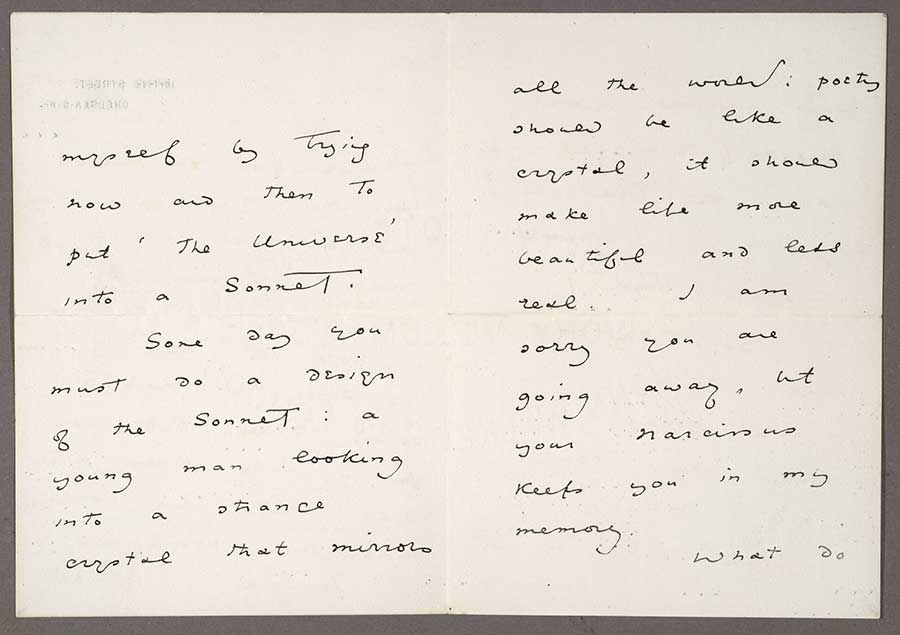 myself by trying
now and then to
put 'The Universe'
into a Sonnet.
Some day you
must do a design
of the Sonnet: a
young man looking
into a strange
crystal that mirrors
all the world: poetry
should be like a
crystal, it should
make life more
beautiful and less
real. I am
sorry you are
going away, but
your narcissus
keeps you in my
memory.
What do